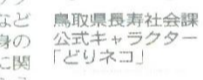 など
身の
に関
鳥取県長寿社会課
公式キャラクター
「どりネコ」